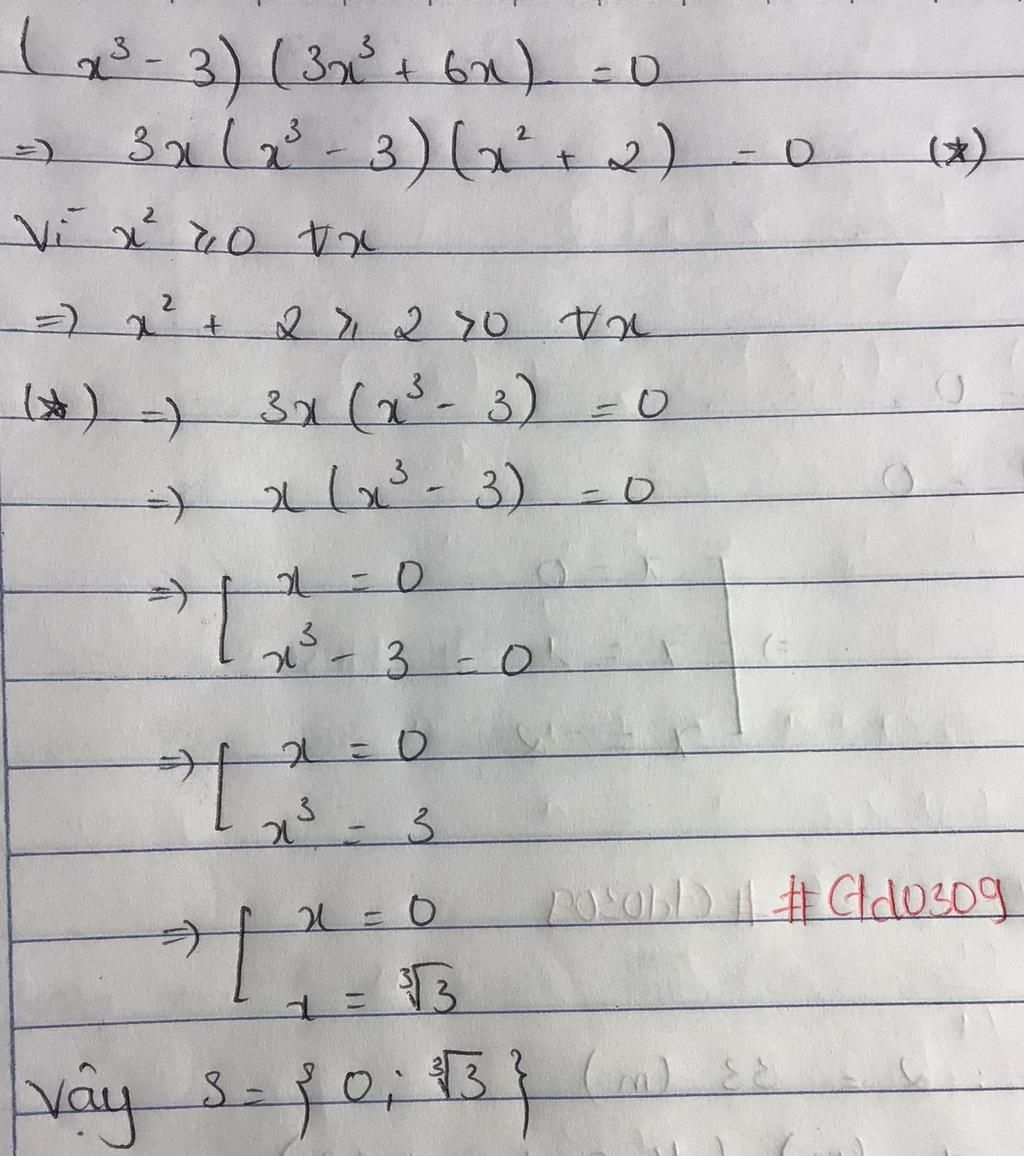 (x³ - 3)(3x³ + 6x) = 0
=> 3x(x³ - 3)(x² + 2) = 0 (*)
Vì x² ⩾ 0 ∀x
=> x² + 2 ⩾ 2 > 0 ∀x
(*) => 3x(x³ - 3) = 0
=> x(x³ - 3) = 0
=> [ x = 0
x³ - 3 = 0
=> [ x = 0
x³ = 3
=> [ x = 0
#Ctd0309
x = ∛3
Vậy S = { 0; ∛3 }